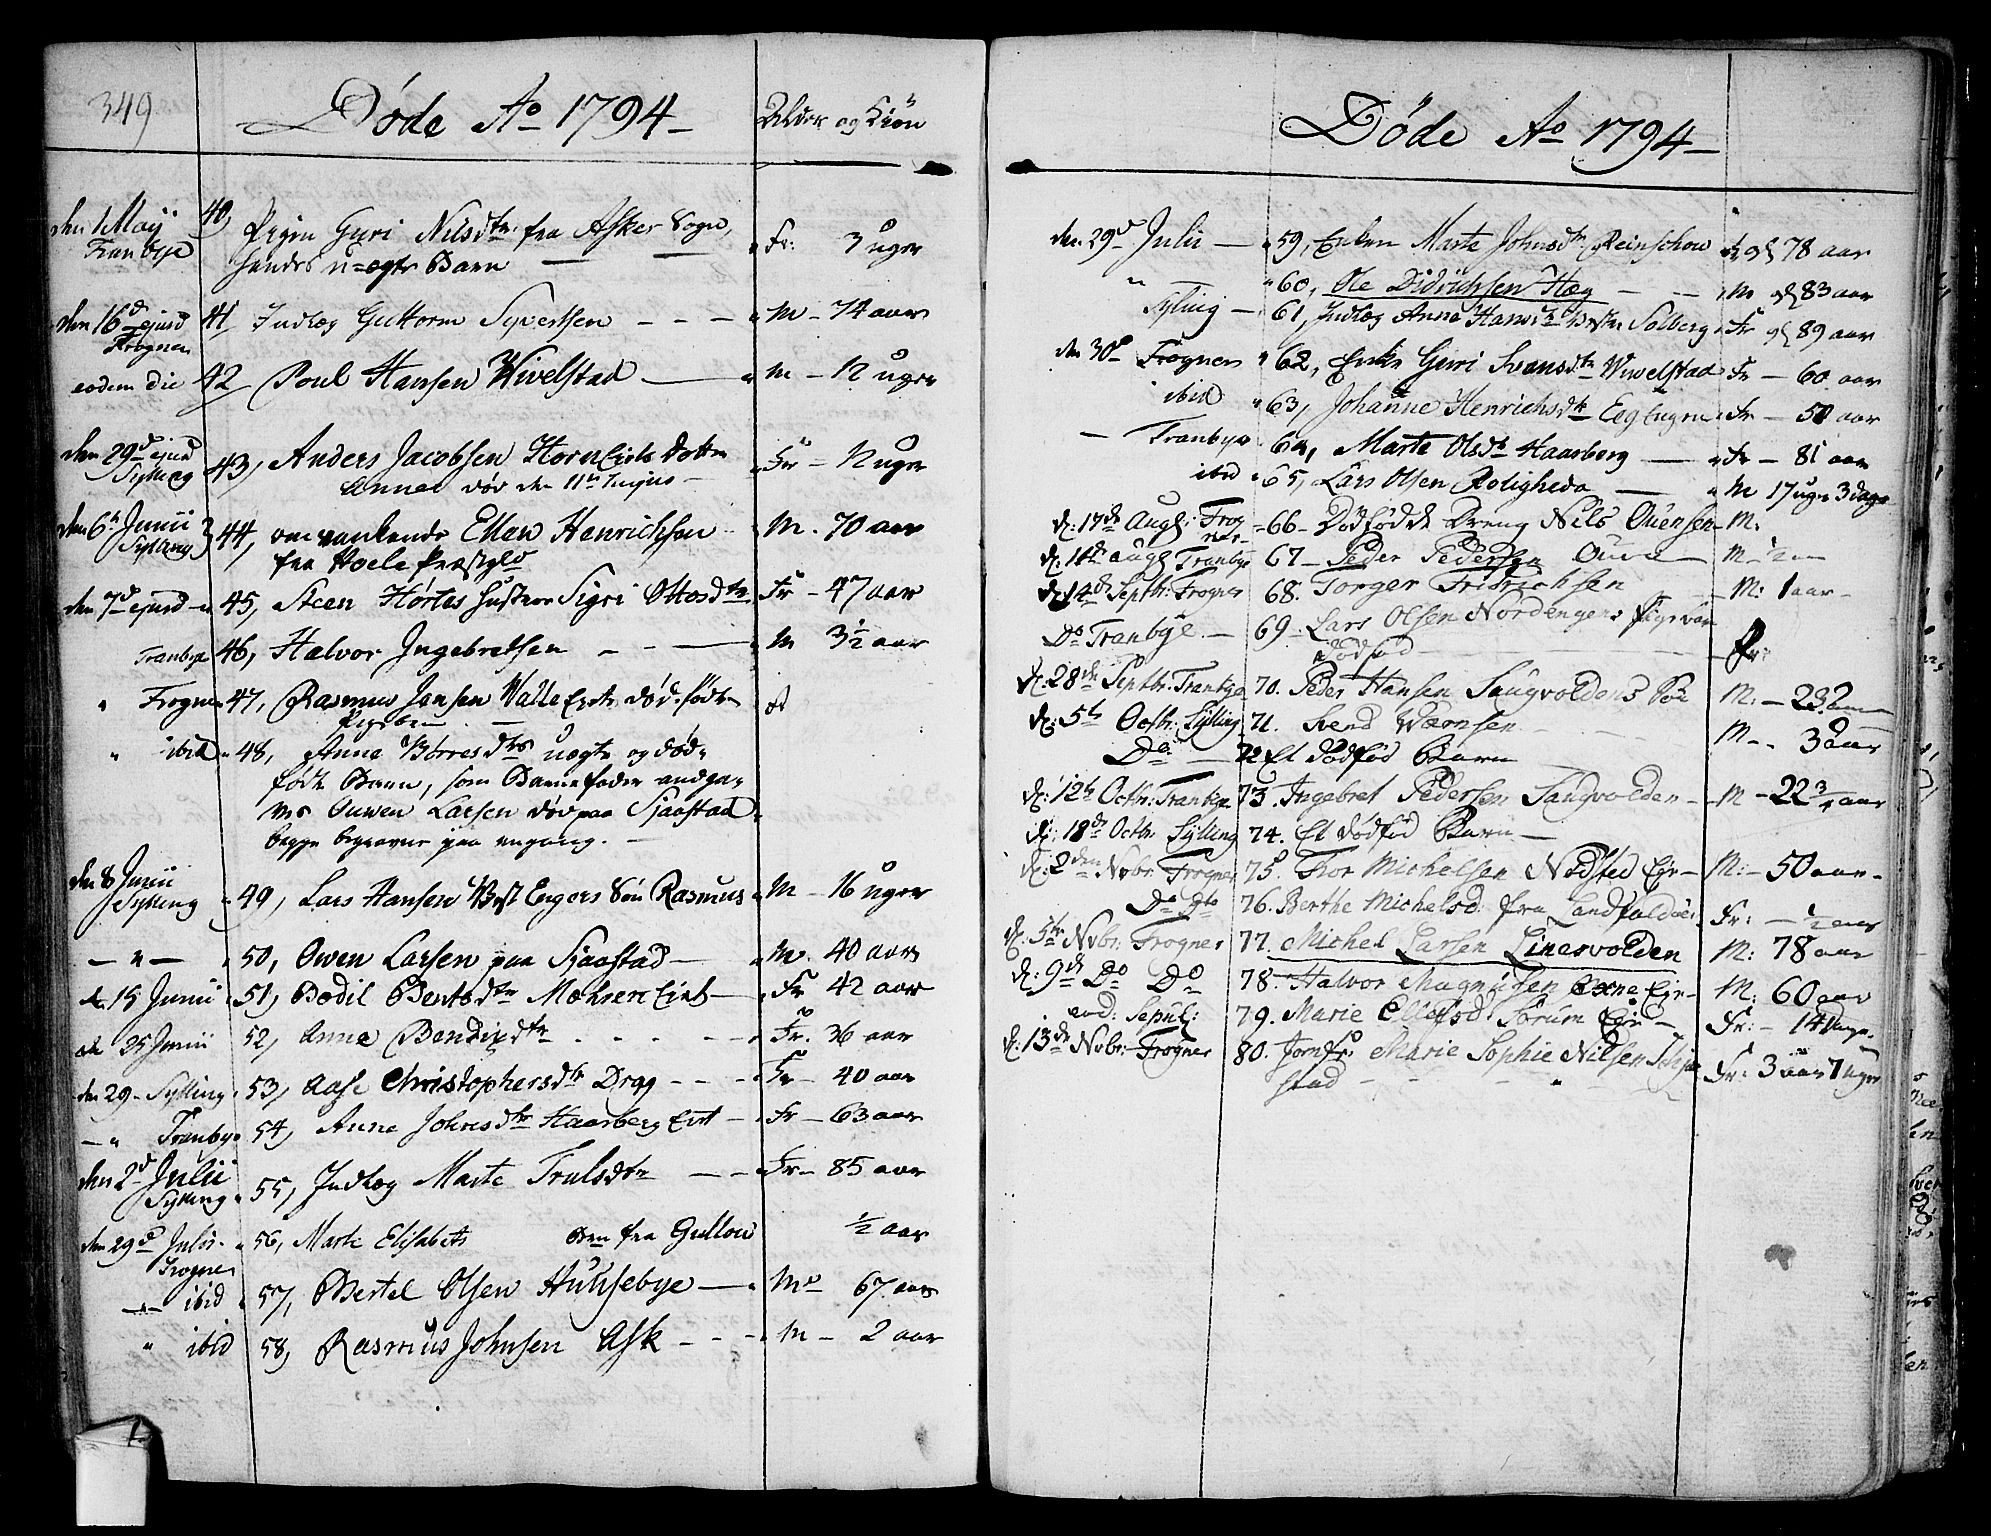 349
Døde Ao 1794
Alder og Kiøn
den 1 Maij 40, Pigen Guri Nilsdtr. fra Asker Sogn, Fr: 3 uger
Tranbye hendes u-ægte Barn
den 16d ejusd 41, Indlæg Guttorm Syvertsen - - - M - 74 aar
Frogner
eodem die 42 Poul Hansen Wivelstad M - 12 uger
den 29d ejusd 43, Anders Jacobsen Horn Eiets Dotter Fr - 12 uger
Sylling Anne døv den 11te hujus
den 6te Junii 44, omvankende Ellan Henrichsen M. 70 aar
Sylling fra Hoele Præstgld
den 7d ejusd 45, Steen Hørtes Hustroe Sigri Ottosdtr Fr - 47 aar
Tranbye 46, Halvor Ingebretsen - - M 3½ aar
Frogner 47, Rasmus Jensen Walle Eiets død-fødte
Pigebarn
ibid 48, Anna Børresdtrs uægte og død-
født Barn, som Barnefader angaves
Ouwen Larsen døv paa Sjaastad
begge begravne paa engang.
den 8 Junii
Sylling 49, Lars Hansen West Engers Søn Rasmus M - 16 uger
- " - 50, Owen Larsen paa Sjaastad M. 40 aar
de 15 Junii 51, Bodil Bentsdtr Mæhren Eiet Fr 42 aar
de 25 Junii 52, Anna Bendixdtr - - - Fr. 36 aar
den 29 - Sylling 53, Aase Christophersdtr Drag - - - Fr - 40 aar
- " Tranbye 54, Anne Johnsdtr Haarberg Eiet - Fr - 63 aar
den 2d Julii
Sylling 55, Indlæg Marte Trulsdtr - - Fr - 85 aar
den 29d Julii 56, Marte Elisabets Bm fra Gullou ½ aar
Frogner
ibid 57, Bertel Olsen Huusebye M 67 aar
" ibid 58, Rasmus Johnsen Ask - - - M - 2 aar
Døde Ao 1794
den 29d Julii 59, Enken Marte Johnsdtr Reinschou 78 aar
" 60, Ole Didrichsen Hæg - - M 83 aar
Sylling 61, Indlæg Anne Hansdtr Solberg Fr 89 aar
den 30d Frogner 62, Enke Guri Svensdtr Wiwelstad Fr - 60 aar
ibid 63, Johanne Henrichsdtr Eegengen Fr - 50 aar
Tranbye 64, Marte Olsdtr Haarberg Fr - 81 aar
ibid 65, Lars Olsen Roligheds M 17 uger 3 dage
d: 17de Aug: Frogner 66 - Dødfødde Dreng Nils Ouensen M:
d: Aug Tranbye 67 - Peder Pedersen Ouen M - ½
d: 14de Septbr: Frogner 68. Torger Fridrichsen M: 1 aar -
Do Tranbye 69 - Lars Olsen Nordengens Pigebarn
dødfød Fr:
d: 28de Septbr: Tranbye 70. Peder Hansen Saugvoldens M: -
d: 5te Octbr: Sylling 71. Svend Wærnsen M - 3 aar
Do 72 Et dødfød Barn
d: 12te Octbr: Tranbye 73. Ingebret Pedersen Saugvolden - M - 22 ¾ aar
d: 18de Octbr: Sylling 74. Et dødfød Barn
d: 2den Nvbr: Frogner 75. Thor Michelsen Nøsted Eje - M: - 50 aar
Do Dto 76. Berthe Michelsd: fra Landfaldøe: Fr: - ½ aar
d: 5te Nvbr: Frogner 77. Michel Larsen Linesvolden M: 78 aar
d: 9de Do Do 78. Halvor Magnusen Eje - M: 60 aar
eod: Sepul: 79. Marie Ellefsd Sørum Eje - Fr: - 14 Dage
d: 13de Nvbr: Frogner 80. Jomfr: Marie Sophie Nilsen
stad - - - Fr: 3 aar 7 uger